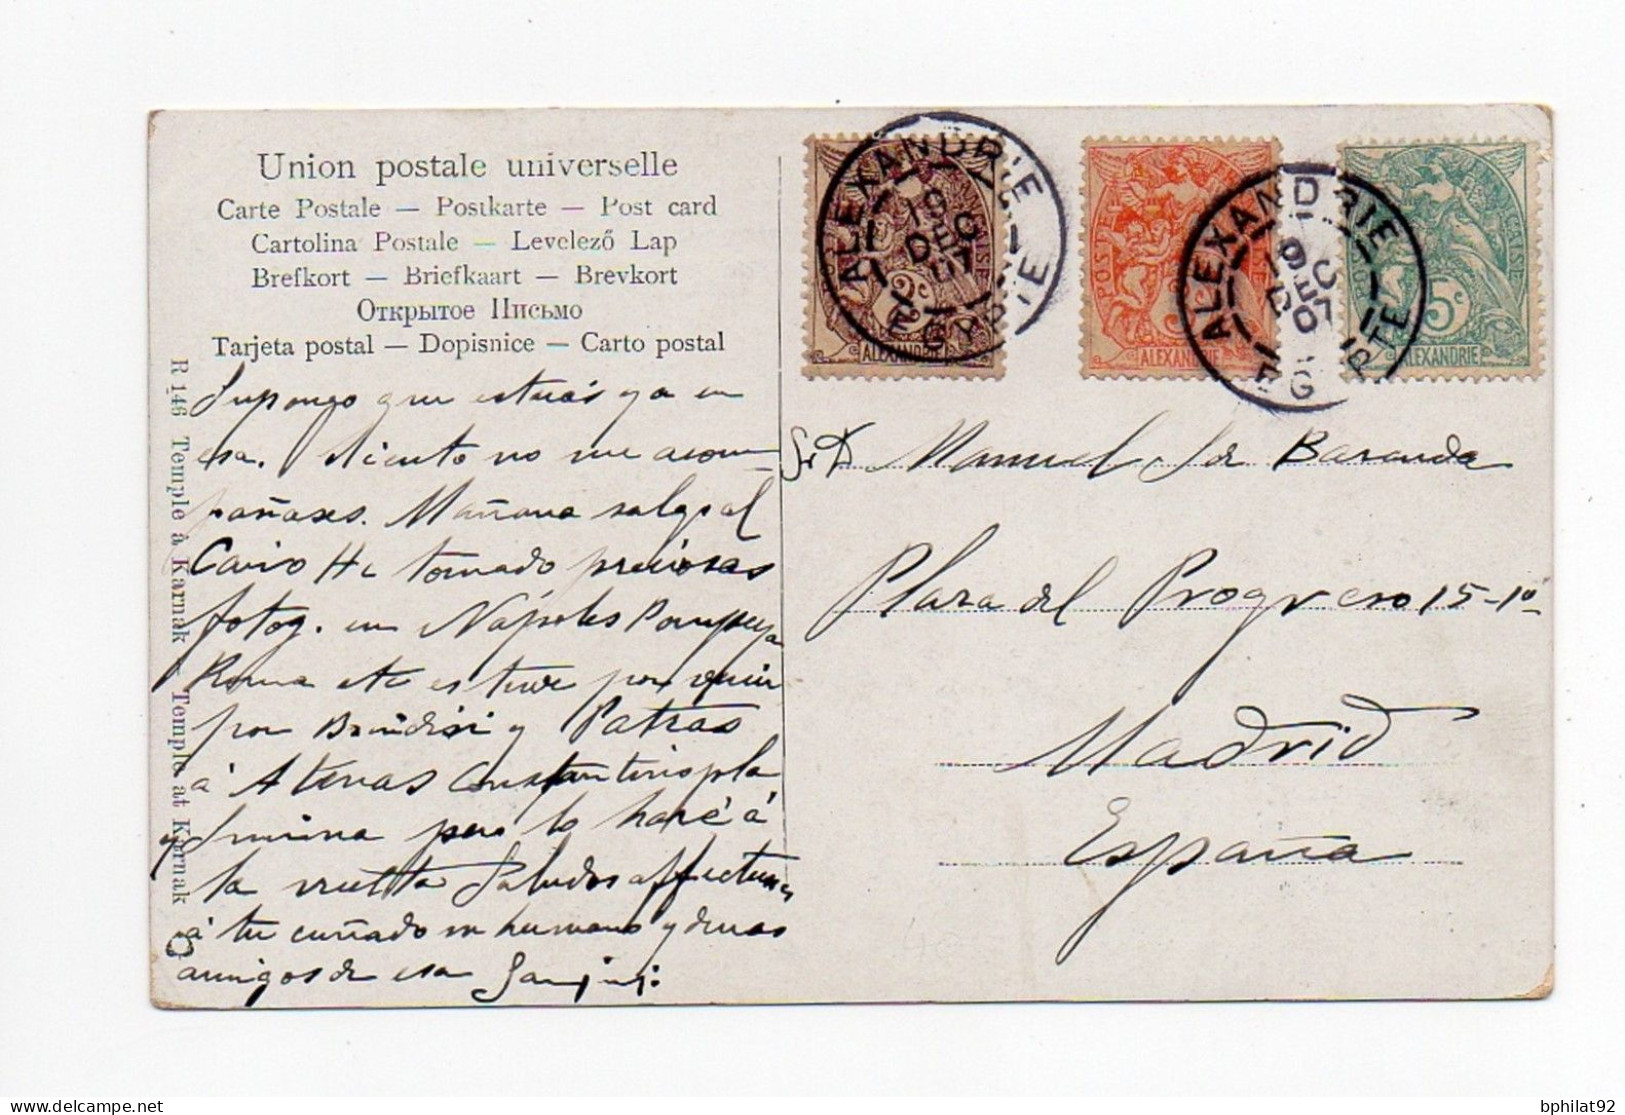 Union postale universelle
Carte Postale — Postkarte — Post card
Cartolina Postale — Levelező Lap
Brefkort — Briefkaart — Brevkort
Открытое Письмо
Tarjeta postal — Dopisnice — Carto postal
R 146 Temple à Karnak Temple at Karnak
Supongo que estarás ya en
esa. Siento no me acom-
pañases. Mañana salgo al
Cairo He tomado preciosas
fotog. en Nápoles Pompeya
Roma etc estuve por venir
por Brindisi y Patras
á Atenas Constantinopla
y Smirna pero lo haré á
la vuelta Saludos afectuosos
á tu cuñado su hermano y demas
amigos de esa
ALEXANDRIE
19
DEC
07
EGYPTE
POSTE
FRANÇAISE
2c
ALEXANDRIE
POSTE
ALEXANDRIE
ALEXANDRIE
19
DEC
07
EGYPTE
5c
ALEXANDRIE
Sr D Manuel Baranda
Plaza del Progreso 15-1º
Madrid
España
bphilat92